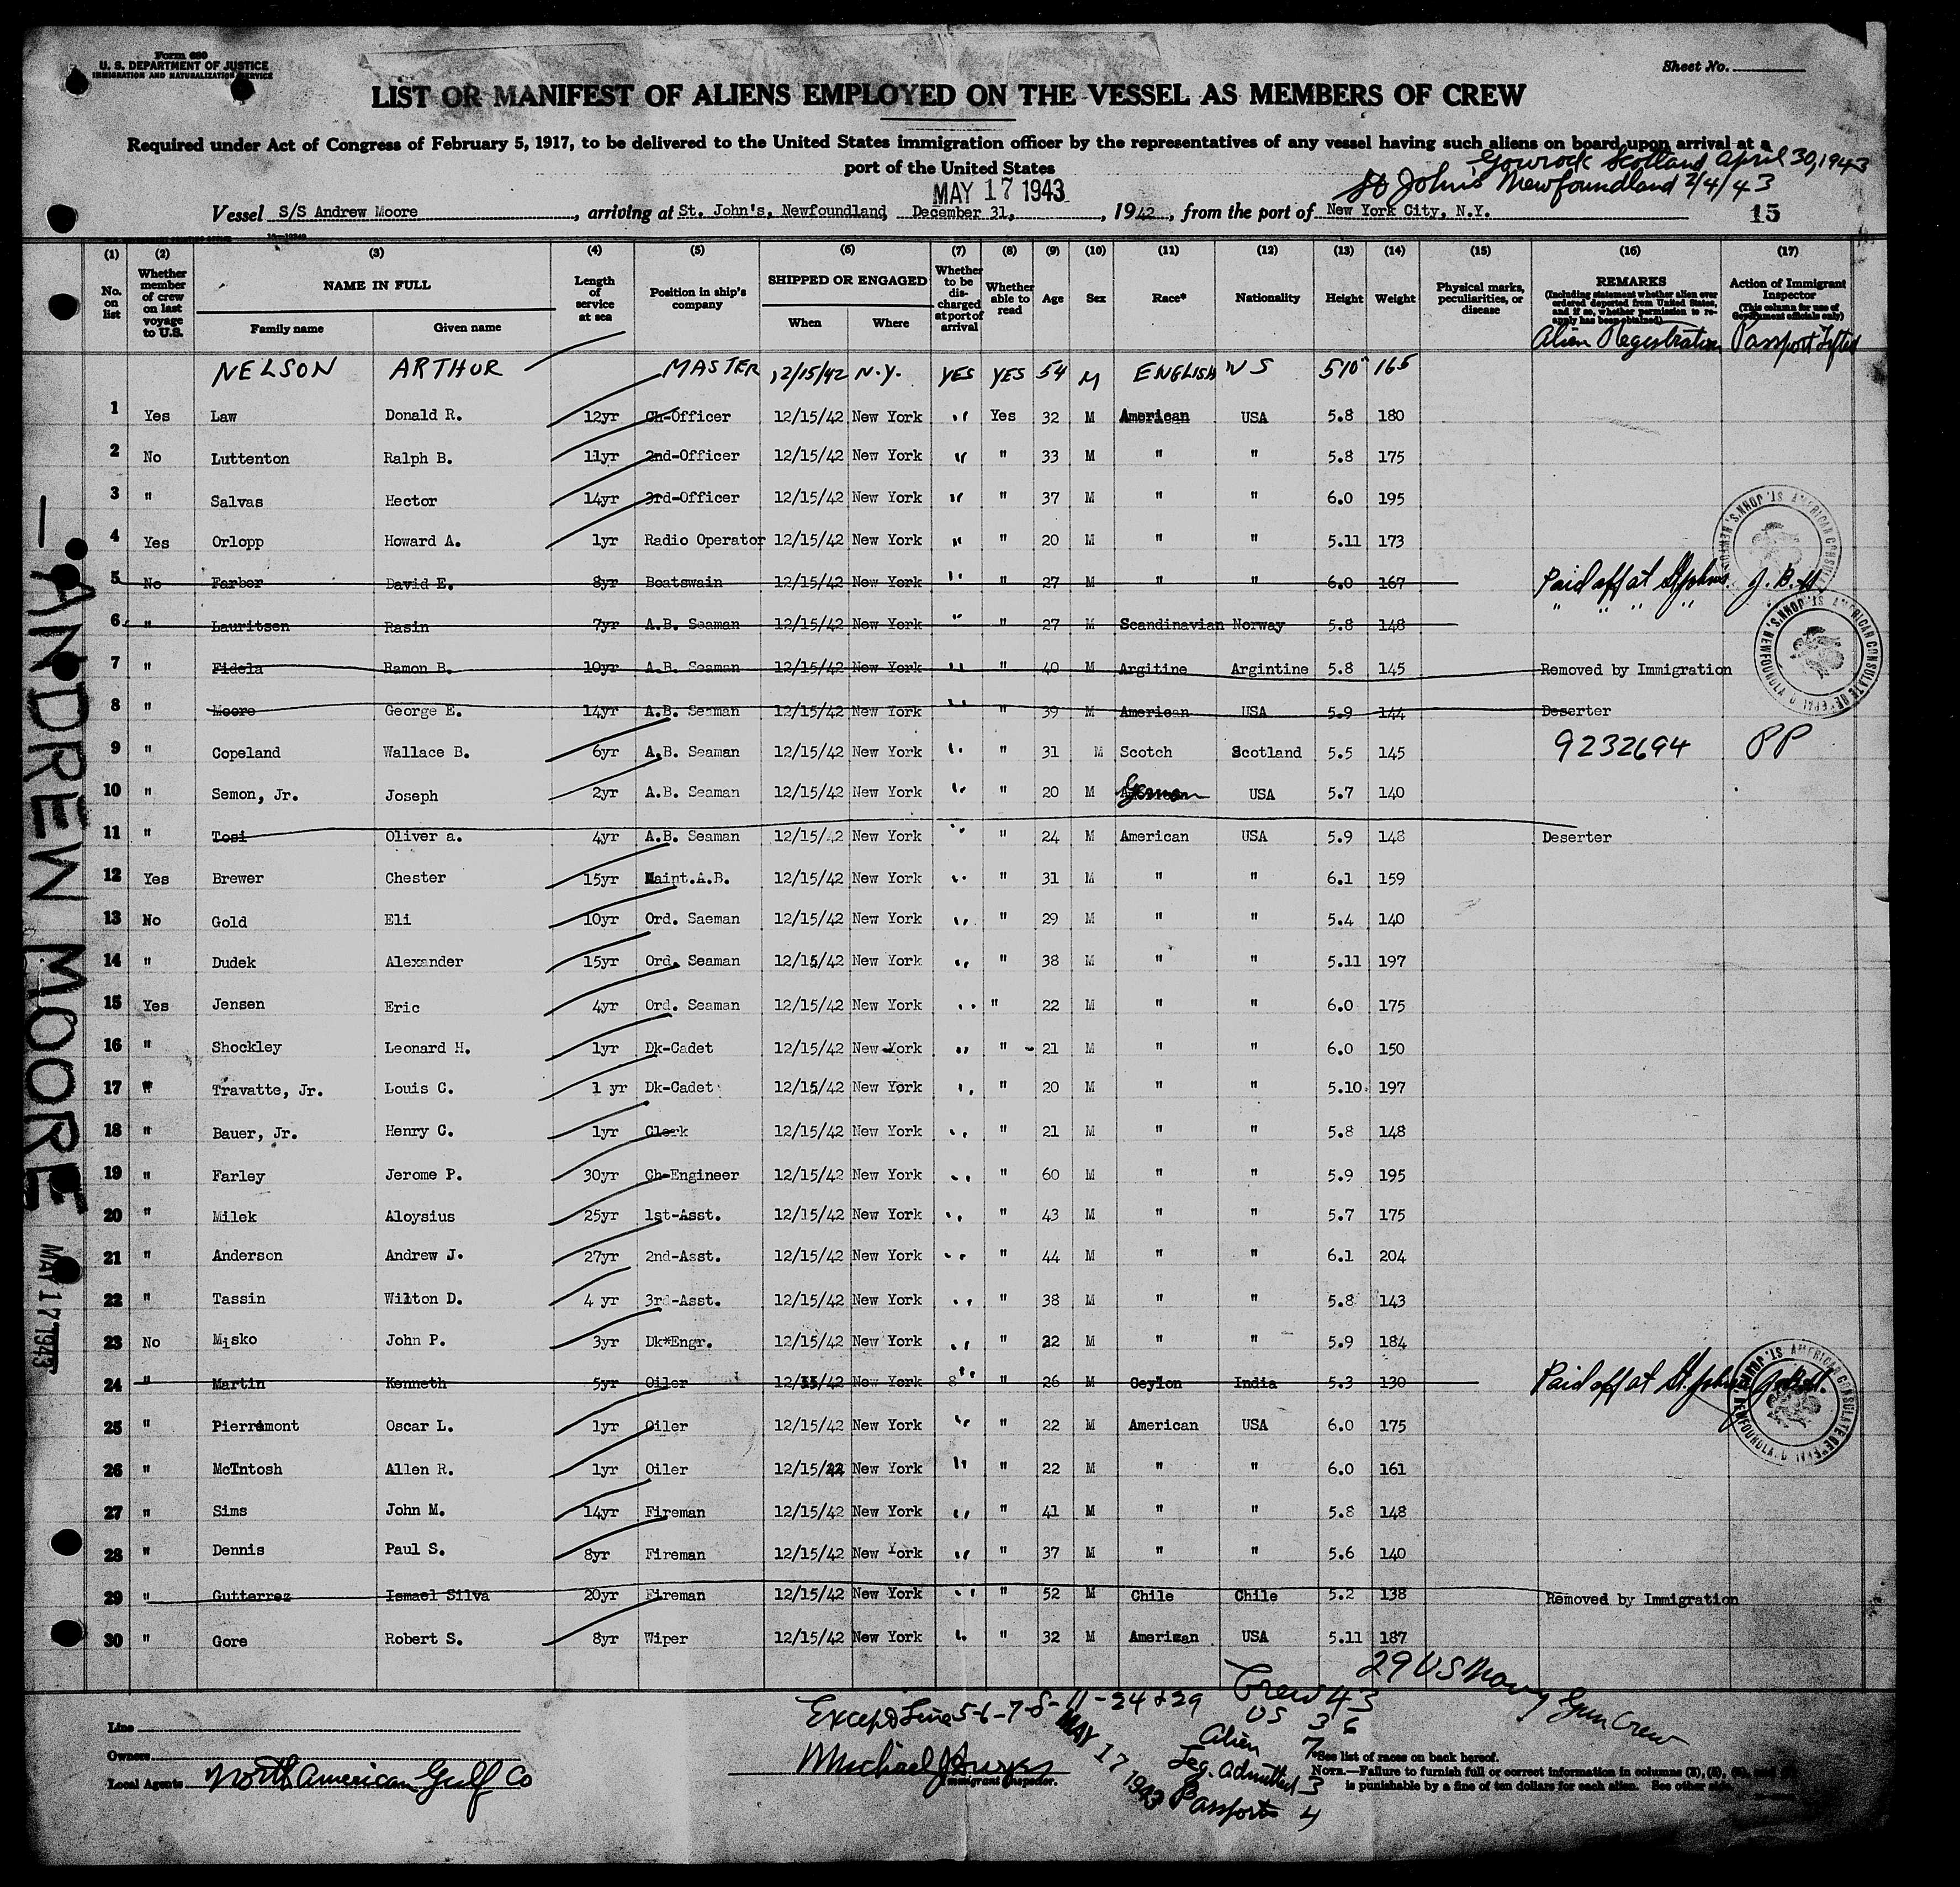 Form 680
U. S. DEPARTMENT OF JUSTICE
IMMIGRATION AND NATURALIZATION SERVICE
Sheet No.
LIST OR MANIFEST OF ALIENS EMPLOYED ON THE VESSEL AS MEMBERS OF CREW
Required under Act of Congress of February 5, 1917, to be delivered to the United States immigration officer by the representatives of any vessel having such aliens on board upon arrival at a
port of the United States
Gourock Scotland April 30, 1943
St John's Newfoundland 2/4/43
MAY 17 1943
Vessel S/S Andrew Moore, arriving at St. John's, Newfoundland, December 31, , 1942, from the port of New York City, N.Y.
15
(1) (2) (3) (4) (5) (6) (7) (8) (9) (10) (11) (12) (13) (14) (15) (16) (17)
No. on list
Whether member of crew on last voyage to U.S.
NAME IN FULL
Family name Given name
Length of service at sea
Position in ship's company
SHIPPED OR ENGAGED
When Where
Whether to be discharged at port of arrival
Whether able to read
Age
Sex
Race*
Nationality
Height
Weight
Physical marks, peculiarities, or disease
REMARKS
(Including statement whether alien ever ordered deported from United States, and if so, whether permission to reapply has been obtained)
Action of Immigrant Inspector
(This column for use of Government officials only)
Alien Registration Passport Lifted
NELSON ARTHUR MASTER 12/15/42 N.Y. YES YES 54 M ENGLISH US 5'10" 165
1 Yes Law Donald R. 12yr Ch-Officer 12/15/42 New York " Yes 32 M American USA 5.8 180
2 No Luttenton Ralph B. 11yr 2nd-Officer 12/15/42 New York " " 33 M " " 5.8 175
3 " Salvas Hector 14yr 3rd-Officer 12/15/42 New York " " 37 M " " 6.0 195
4 Yes Orlopp Howard A. 1yr Radio Operator 12/15/42 New York " " 20 M " " 5.11 173
5 No Farber David E. 8yr Boatswain 12/15/42 New York " " 27 M " " 6.0 167 Paid off at St Johns J.B.H.
6 " Lauritsen Rasin 7yr A.B. Seaman 12/15/42 New York " " 27 M Scandinavian Norway 5.8 148 " " " "
7 " Fidela Ramon B. 10yr A.B. Seaman 12/15/42 New York " " 40 M Argitine Argintine 5.8 145 Removed by Immigration
8 " Moore George E. 14yr A.B. Seaman 12/15/42 New York " " 39 M American USA 5.9 144 Deserter
9 " Copeland Wallace B. 6yr A.B. Seaman 12/15/42 New York " " 31 M Scotch Scotland 5.5 145 9232694 PP
10 " Semon, Jr. Joseph 2yr A.B. Seaman 12/15/42 New York " " 20 M German USA 5.7 140
11 " Tosi Oliver a. 4yr A.B. Seaman 12/15/42 New York " " 24 M American USA 5.9 148 Deserter
12 Yes Brewer Chester 15yr Maint.A.B. 12/15/42 New York " " 31 M " " 6.1 159
13 No Gold Eli 10yr Ord. Saeman 12/15/42 New York " " 29 M " " 5.4 140
14 " Dudek Alexander 15yr Ord. Seaman 12/15/42 New York " " 38 M " " 5.11 197
15 Yes Jensen Eric 4yr Ord. Seaman 12/15/42 New York " " 22 M " " 6.0 175
16 " Shockley Leonard H. 1yr Dk-Cadet 12/15/42 New York " " 21 M " " 6.0 150
17 " Travatte, Jr. Louis C. 1 yr Dk-Cadet 12/15/42 New York " " 20 M " " 5.10 197
18 " Bauer, Jr. Henry C. 1yr Clerk 12/15/42 New York " " 21 M " " 5.8 148
19 " Farley Jerome P. 30yr Ch-Engineer 12/15/42 New York " " 60 M " " 5.9 195
20 " Milek Aloysius 25yr 1st-Asst. 12/15/42 New York " " 43 M " " 5.7 175
21 " Anderson Andrew J. 27yr 2nd-Asst. 12/15/42 New York " " 44 M " " 6.1 204
22 " Tassin Wilton D. 4 yr 3rd-Asst. 12/15/42 New York " " 38 M " " 5.8 143
23 No Misko John P. 3yr Dk*Engr. 12/15/42 New York " " 22 M " " 5.9 184
24 " Martin Kenneth 5yr Oiler 12/15/42 New York " " 26 M Ceylon India 5.3 130 Paid off at St. Johns J.B.H.
25 " Pierremont Oscar L. 1yr Oiler 12/15/42 New York " " 22 M American USA 6.0 175
26 " McIntosh Allen R. 1yr Oiler 12/15/22 New York " " 22 M " " 6.0 161
27 " Sims John M. 14yr Fireman 12/15/42 New York " " 41 M " " 5.8 148
28 " Dennis Paul S. 8yr Fireman 12/15/42 New York " " 37 M " " 5.6 140
29 " Gutterrez Ismael Silva 20yr Fireman 12/15/42 New York " " 52 M Chile Chile 5.2 138 Removed by Immigration
30 " Gore Robert S. 8yr Wiper 12/15/42 New York " " 32 M American USA 5.11 187
AMERICAN CONSULATE GENERAL ST. JOHN'S, NEWFOUNDLAND
AMERICAN CONSULATE GENERAL ST. JOHN'S, NEWFOUNDLAND
AMERICAN CONSULATE GENERAL ST. JOHN'S, NEWFOUNDLAND
— ANDREW MOORE
MAY 17 1943
29 US Navy Gun Crew
Except Line 5-6-7-8-11-24 & 29
Crew 43
US 36
Alien 7
Leg. Admitted 3
Passports 4
MAY 17 1943
Line
Owners
Local Agents North American Gulf Co
Michael J
Immigrant Inspector.
*See list of races on back hereof.
NOTE.—Failure to furnish full or correct information in columns (3), (5),
is punishable by a fine of ten dollars for each alien. See other side.